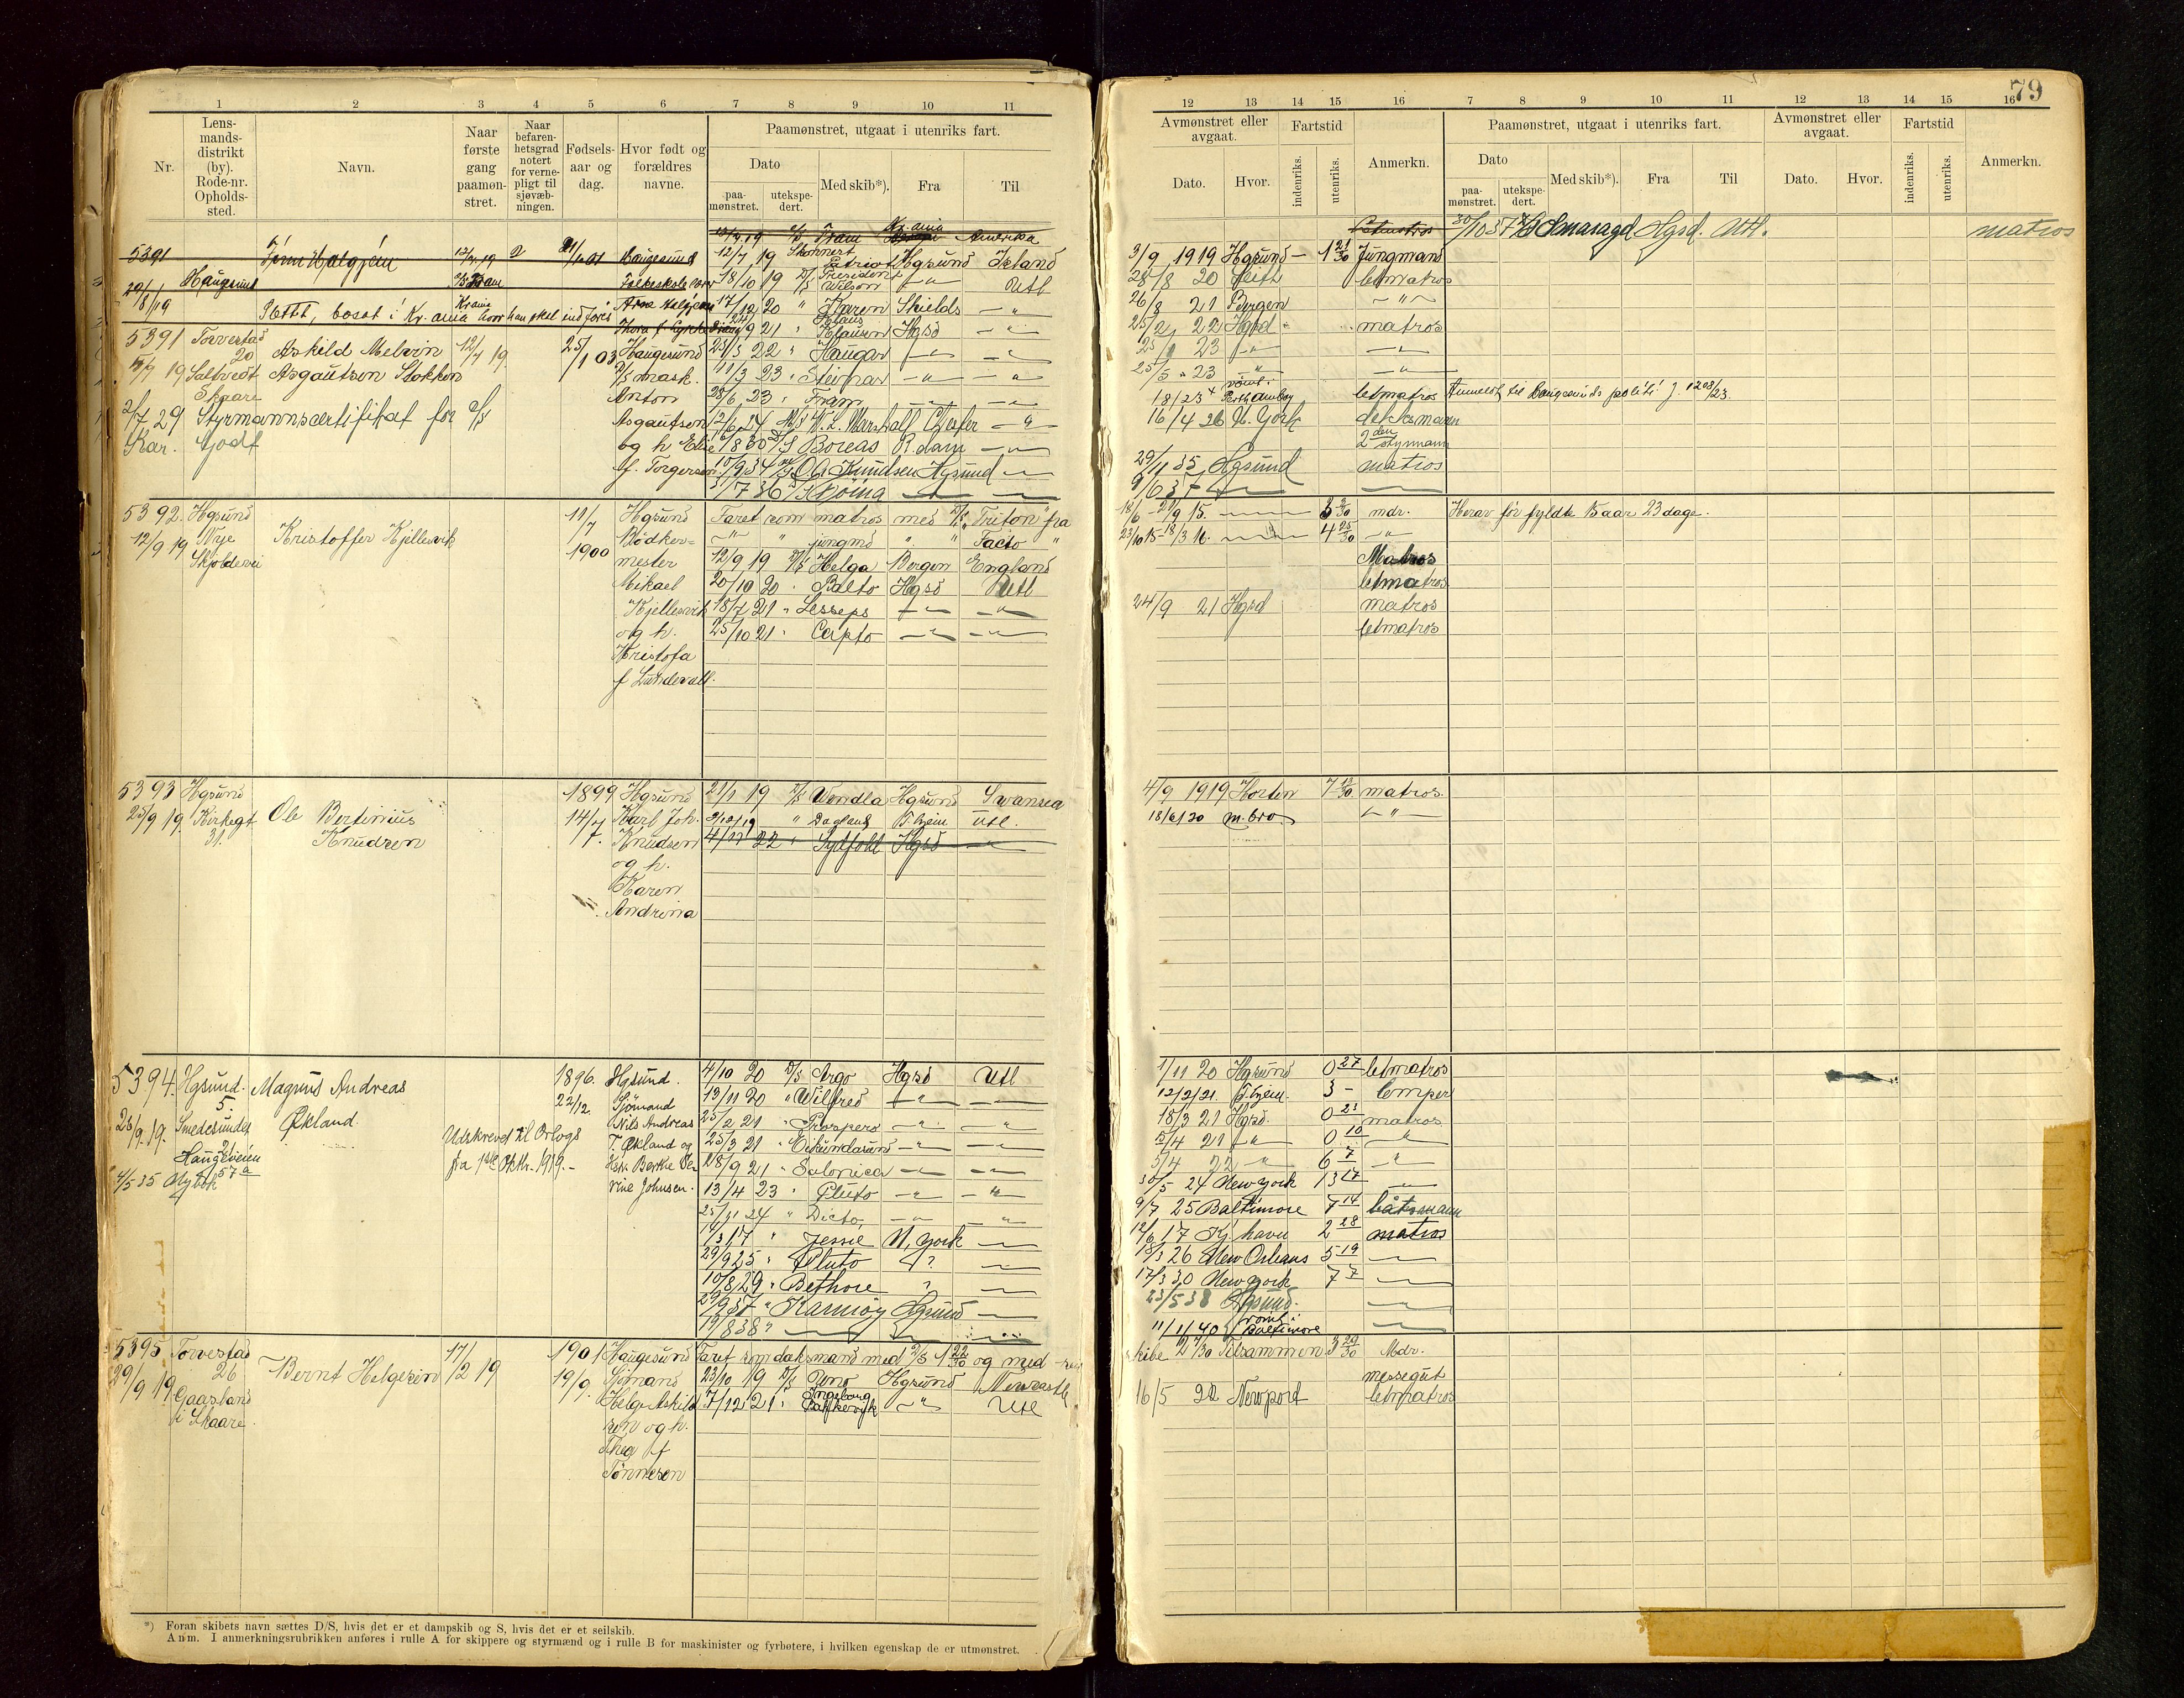 79
1 2 3 4 5 6 7 8 9 10 11
Nr.
Lens-
mands-
distrikt
(by).
Rode-nr.
Opholds-
sted.
Navn.
Naar
første
gang
paamøn-
stret.
Naar
befaren-
hetsgrad
notert
for verne-
pligt til
sjøvæb-
ningen.
Fødsels-
aar og
dag.
Hvor født og
forældres
navne.
Paamønstret, utgaat i utenriks fart.
Dato
paa-
mønstret.
utekspe-
dert.
Med skib*).
Fra
Til
5391
Haugesund
12/7 19
Haugesund
Fram
Amerika
29/8 19
Flyttet, bosat i Kr.ania hvor han skal indføres
5391 Torvestad
20
5/9 19 Saltvedt
Skaare
Askild Melvin
Asgautsen Stokken
12/7 19.
25/1 03
Haugesund
D/S mask.
Anton
Asgautsen
og h. Elise
f. Torgersen
2/7 29 Styrmannscertifikat for D/S
Kar. Godt
12/7 19 Skonnert Patriot Hgsund Island
18/10 19 D/S President Wilson -"- Utl
17/12 20 " Karen Skields -"-
9 21 " Klaus Klausen Hgsd -"-
23/3 22 " Haugar -"- -"-
11/3 23 " Steinar -"- -"-
28/6 23 " Fram -"- -"-
12/6 24 M/S W. L. Marshall Chester -"-
9/8 30 D/S Boreas R.dam -"-
10/9 34 M/S O. B. Knudsen Hgsund -"-
3/7 36
5392. Hgsund
12/9 19 Nye
Skjoldevei
Kristoffer Kjellesvik
11/7
1900
Hgsund
Bødker-
mester
Mikael
Kjellesvik
og h.
Kristofa
f Lundevall.
Faret som matros med D/S "Triton" fra
-"- " jungmd " " Tacto "
12/9 19 D/S Helga Bergen England
20/10 20 " Balto Hgsd Utl
18/7 21 " Lesseps -"- -"-
25/10 21 " Capto -"- -"-
5393 Hgsund
25/9 19. Kirkegt
31.
Ole Bertinius
Knudsen
1899
14/7
Hgsund
Karl Joh.
Knudsen
og h.
Karen
Andrina
21/1 19 D/S Wendla Hgsund Swansea
2/12/19 " Dagland T.hjem Utl.
4/11 22 " Sydfold Hgsd -"-
5394. Hgsund.
5.
26/9. 19. Smedesundet
Haugeveien
57a
4/5 35
Magnus Andreas
Økland.
Udskrevet til Orlogs
fra 1ste Oktbr. 1919.-
1896.
22/12.
Hgsund.
Sjømand
Nils Andreas
T. Økland og
Hstr. Berthe Se-
rine Johnsen.
4/10 20 D/S Argo Hgsd Utl
13/11 20 " Wilfred -"- -"-
25/2 21 " Prospero -"- -"-
25/3 21 " Eikundasund -"- -"-
28/9 21 " Salonica -"- -"-
13/4 23 " Pluto -"- -"-
25/11 24 " Dicto, -"- -"-
1/3 17 " Jessie N. york -"-
29/9 25 " Pluto " ? -"-
10/8 29 " Bethore ? -"-
29/9 37 " Karmøy Hgsund -"-
19/8 38 " -"- -"-
5395 Torvestad
26
29/9 19. Gaasland
i Skaare.
Bernt Helgesen
17/2 19
1901
19/9.
Haugesund
Sjømand
Helge Askild-
sen og h.
Thea f
Tønnesen
Faret som daksmand med D/S 1 22/30 og med
23/10 19 D/S Uno Hgsund Newcastle
7/12 21 " Ingeborg -"- Utl
*) Foran skibets navn sættes D/S, hvis det er et dampskib og S, hvis det er et seilskib.
Anm. I anmerkningsrubrikken anføres i rulle A for skippere og styrmænd og i rulle B for maskinister og fyrbøtere, i hvilken egenskap de er utmønstret.
12 13 14 15 16 7 8 9 10 11 12 13 14 15 16
Avmønstret eller
avgaat.
Dato.
Hvor.
Fartstid
indenriks.
utenriks.
Anmerkn.
Paamønstret, utgaat i utenriks fart.
Dato
paa-
mønstret.
utekspe-
dert.
Med skib*).
Fra
Til
Avmønstret eller
avgaat.
Dato.
Hvor.
Fartstid
indenriks.
utenriks.
Anmerkn.
30/10 37 Smaragd Hgsd. Utl. matros
3/9 1919 Hgsund - 1 21/30 Jungmand
28/8 20 Leith letmatros
26/8 21 Bergen -"-
25/2 22 Hgsd matros
25/1 23 -"- -"-
25/5 23 -"- -"-
18/1 25 rømt. Perth Amboy letmatros Anmeldt til Haugesunds politi J. 1208/23.
16/4 26 N. York. deksmann
2den styrmann
29/11 35 Hgsund matros
9/6 37 -"- -"-
18/6 - 21/9 15. 3 3/30 mdr. Herav før fyldte 15 aar 23 dage.
23/10 15 - 18/3 16. 4 25/30 -"-
Matros
letmatros
24/9 21 Hgsd matros
letmatros
4/9 1919 Horten 7 13/30 matros.
18/6/20 m.bro. -"-
1/11 20 Hgsund 0 27 letmatros
12/2/21. T.hjem. 3 - lemper
18/3 21 Hgsd. 0 21 matros
5/4 21 -"- 0 10 -"-
5/4 22 -"- 6 7 -"-
30/5 24 New york 13 17 -"-
9/7 25 Baltimore 7 14 båtsmann
12/6 17 Kj. havn 2 28 matros
18/3 26 New Orleans 5 19 -"-
17/3 30 New york 7 7 -"-
23/5 38 Hgsund. -"-
11/1/40 rømt i Baltimore -"-
skibe 2 7/30 Tilsammen 3 29/30 Mdr.
messegut
16/5 22 Newport letmatros